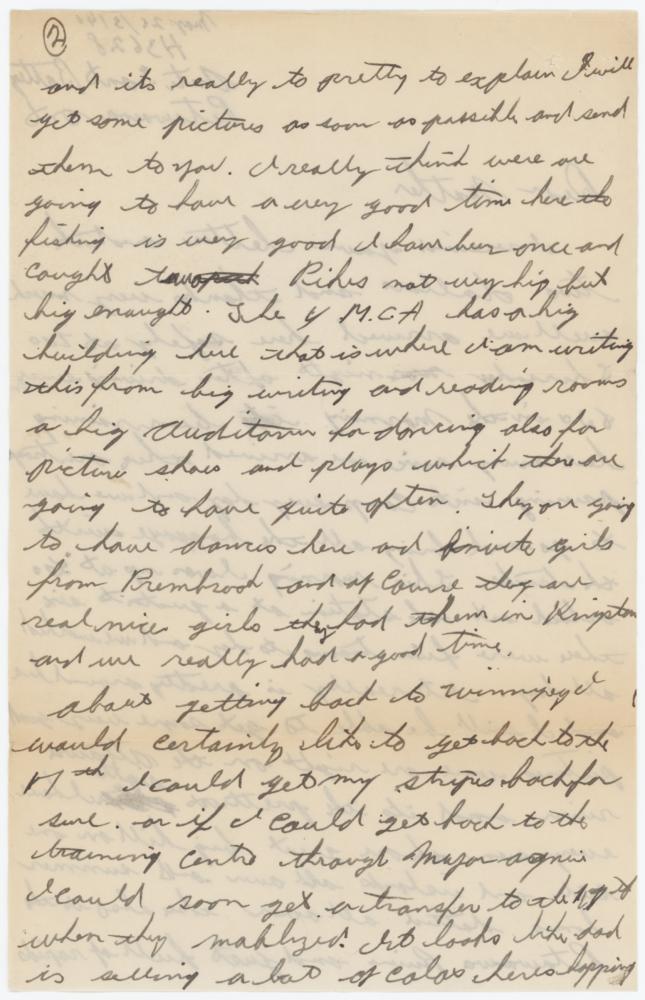 2
and its really to pretty to explain I will
get some pictures as soon as possible and send
them to you. I really think were are
going to have a very good time here the
fishing is very good I have been once and
caught two Pikes not very big but
big enought. The Y M.C.A has a big
building here that is where I am writing
this from big writing and reading rooms
a big Auditorium for dancing also for
picture shows and plays which there are
going to have quite often. They are going
to have dances here and invite girls
from Pembrook and of Course they are
real nice girls they had them in Kingston
and we really had a good time.
about getting back to Winnipeg I
would certainly like to get back to the
17th I could get my stripes back for
sure. or if I Could get back to the
training Centre through Major
I could soon get a transfer to the 17th
when they moblized. It looks like dad
is selling a lot of heres hopping